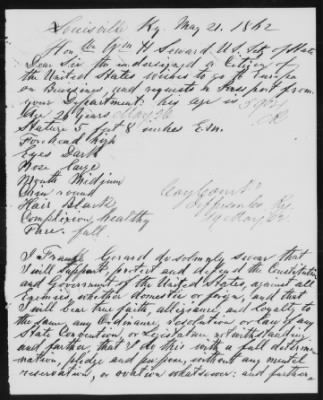 Louisville Ky. May 21. 1862
Hon Wm H Seward U.S. Sety of State
Dear Sir the undersigned a Citizen of
the United States wishes to go to Europe
on Bussiness, and requests a Passport from
your Department: his age is
Age 26 Years May 26
Stature 5 feet 8 inches Esn.
Forehead high
Eyes Dark
Nose Large
Mouth Midjum
Chin round
Hair Black
Complexion, healthy
Face. full.
I Frank Gerard do solmnly swear that
I will Support, protect and defend the Constitution
and Government of the United States, against all
Enemies, whether domestic or forign, and that
I will bear true faith, allegiance, and loyalty to
the same, any Ordinance, resolution or law of any
State Convention, or Legislature notwithstanding
and further, that I do this with a full determi-
nation, pledge and purpose, without any mental
reservation, or evation whatsoever: and further